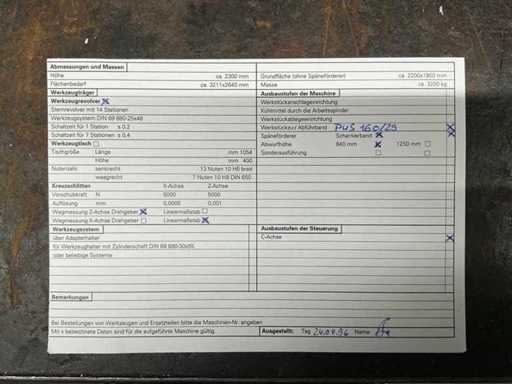 Abmessungen und Massen
Höhe ca. 2300 mm
Flächenbedarf ca. 3211x2640 mm
Grundfläche (ohne Späneförderer) ca. 2200x1803 mm
Masse ca. 3200 kg
Werkzeugträger
Werkzeugrevolver x
Sternrevolver mit 14 Stationen
Werkzeugsystem DIN 69 880-25x48
Schaltzeit für 1 Station s 0,2
Schaltzeit für 7 Stationen s 0,4
Werkzeugtisch
Tischgröße Länge mm 1054
Höhe mm 400
Nutenzahl senkrecht 13 Nuten 10 H8 breit
waagrecht 7 Nuten 10 H8 DIN 650
Kreuzschlitten X-Achse Z-Achse
Vorschubkraft N 5000 5000
Auflösung mm 0,0005 0,001
Wegmessung Z-Achse Drehgeber x Linearmaßstab
Wegmessung X-Achse Drehgeber Linearmaßstab x
Werkzeugsystem
über Adapterhalter
für Werkzeughalter mit Zylinderschaft DIN 69 880-30x55
oder beliebige Systeme
Ausbaustufen der Maschine
Werkstückanschlageinrichtung
Kühlmittel durch die Arbeitsspindel
Werkstückablageeinrichtung
Werkstückzu/Abführband x
Späneförderer Scharnierband x
Abwurfhöhe 840 mm x 1250 mm
Sonderausführung
Ausbaustufen der Steuerung
C-Achse x
Bemerkungen
Bei Bestellungen von Werkzeugen und Ersatzteilen bitte die Maschinen-Nr. angeben
Mit x bezeichnete Daten sind für die aufgeführte Maschine gültig.
Ausgestellt: Tag 24.04.96 Name